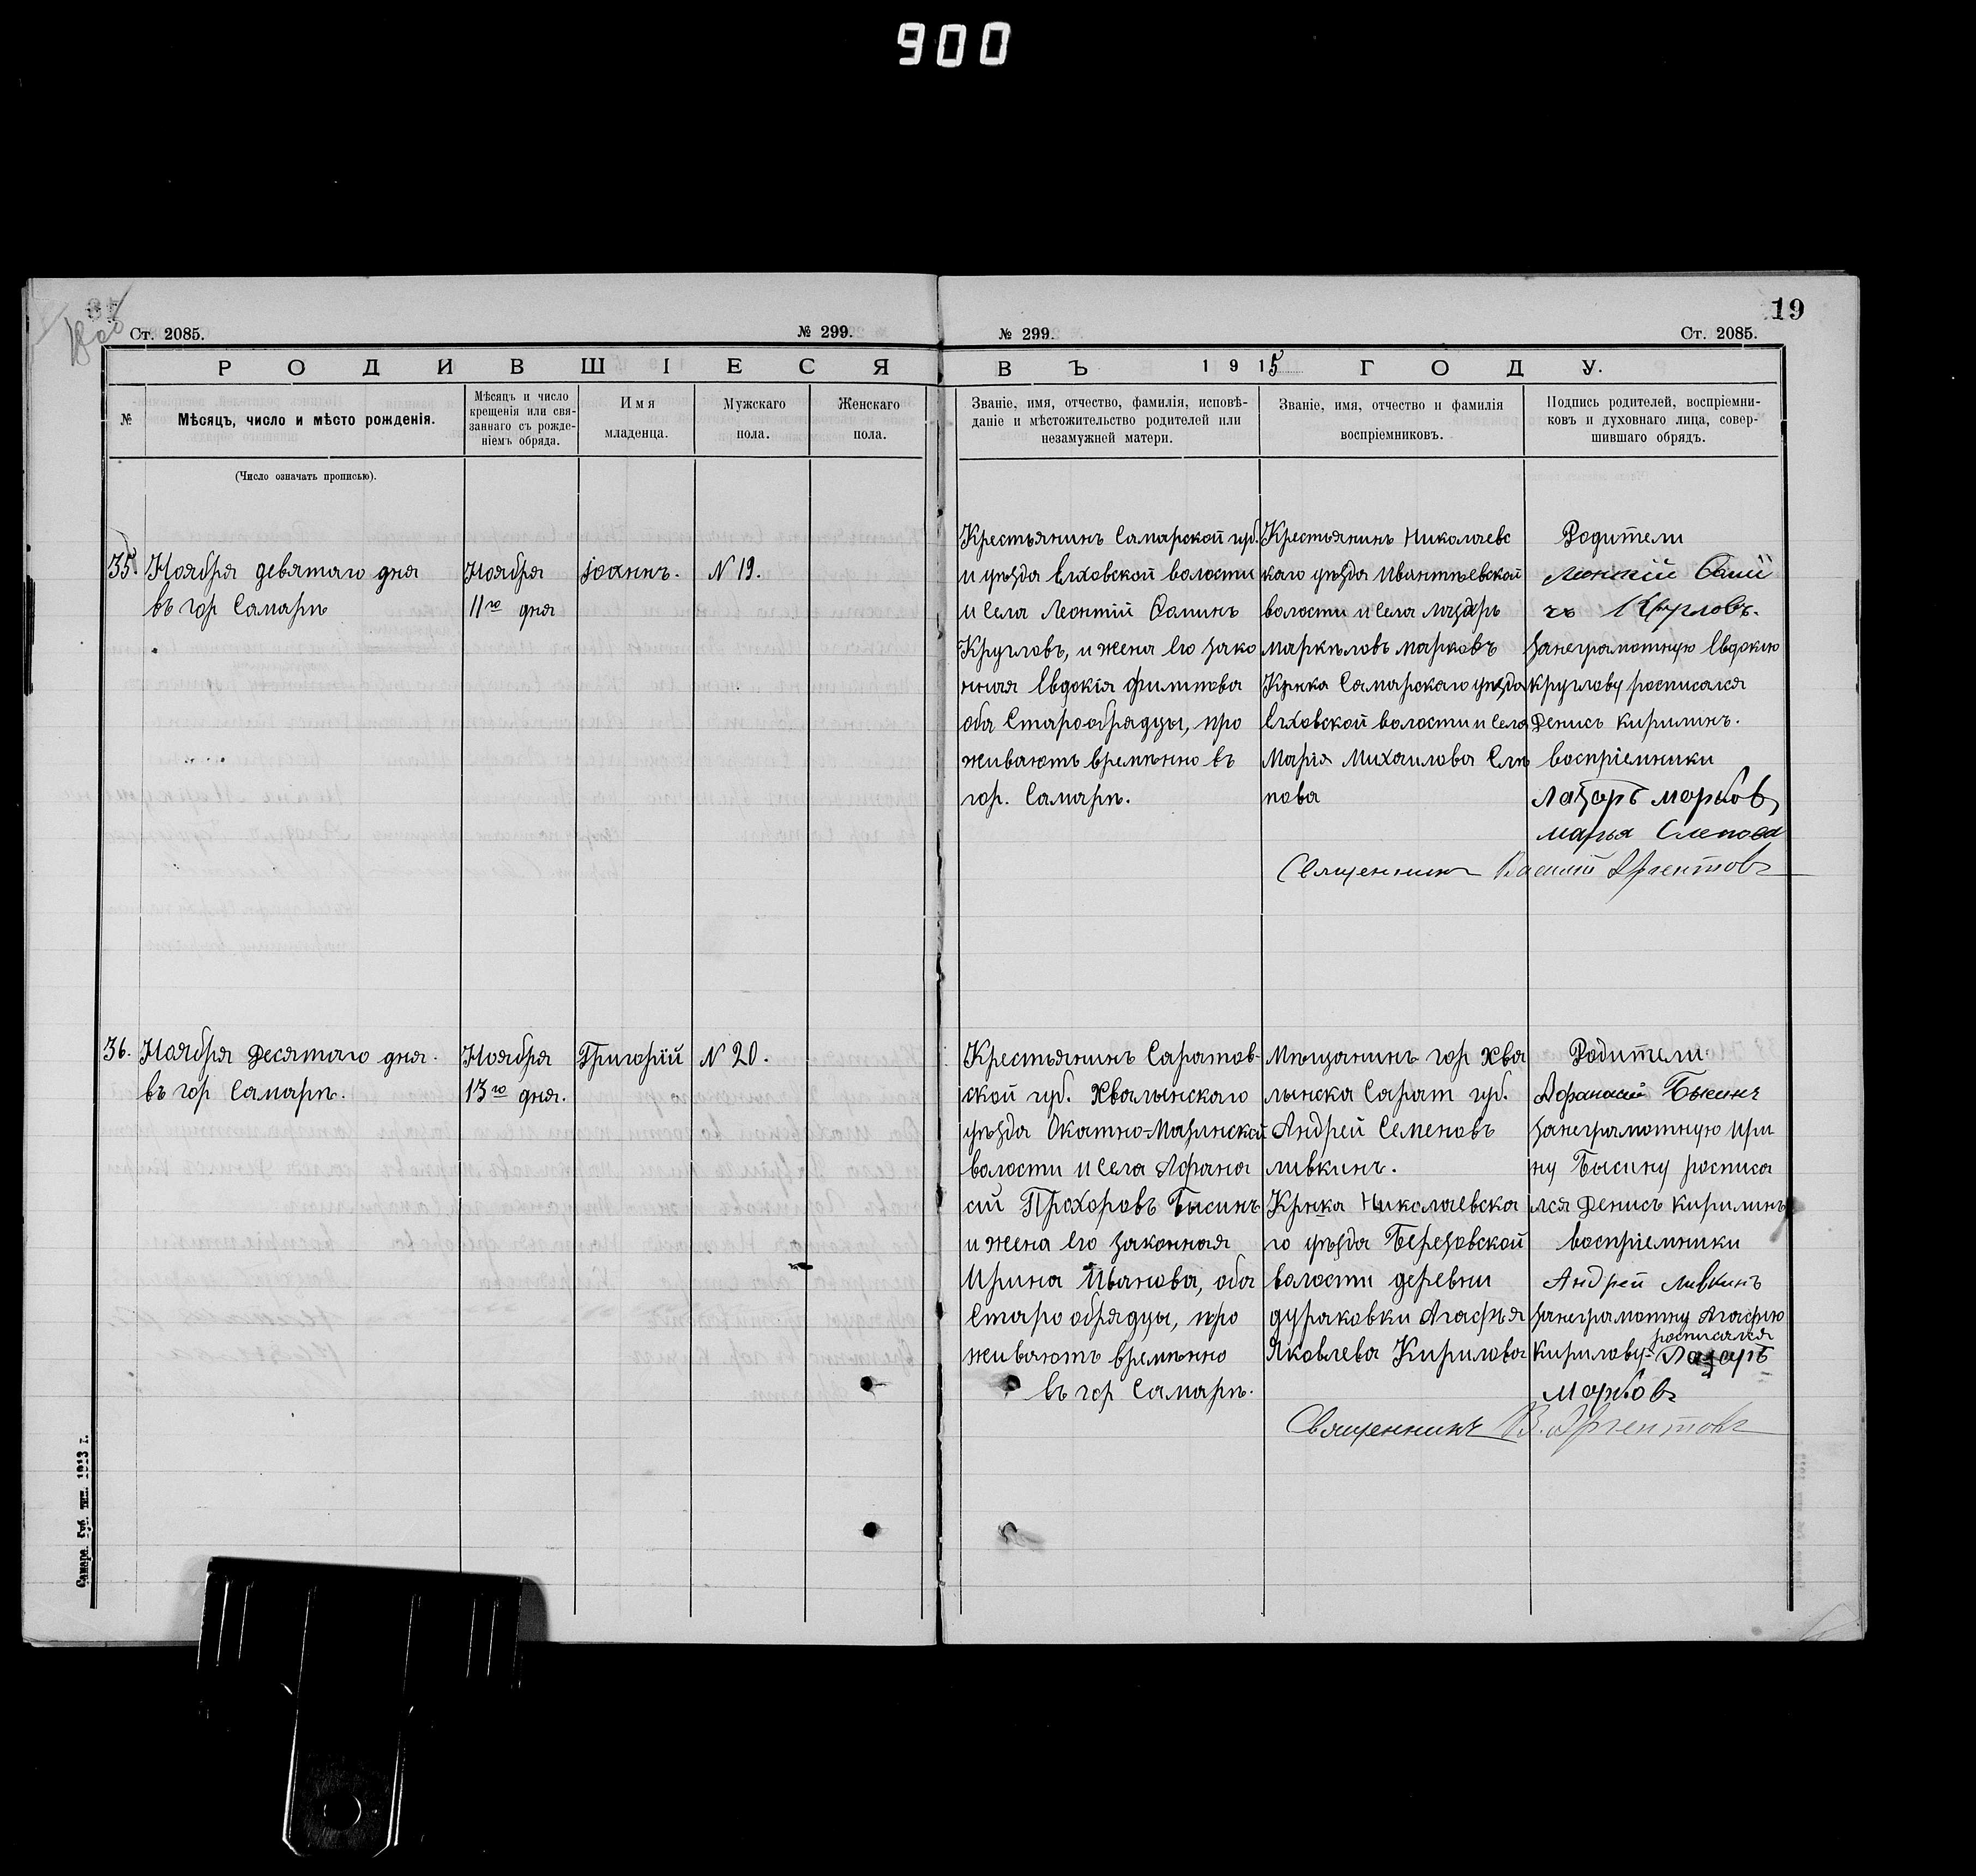 900
19
Ст. 2085.
№ 299.
№ 299.
Ст. 2085.
РОДИВШІЕСЯ
ВЪ 1915 ГОДУ.
№
Мѣсяцъ, число и мѣсто рожденія.
Мѣсяцъ и число
крещенія или свя-
заннаго съ рожде-
ніемъ обряда.
Имя
младенца.
Мужскаго
пола.
Женскаго
пола.
Званіе, имя, отчество, фамилія, исповѣ-
даніе и мѣстожительство родителей или
незамужней матери.
Званіе, имя, отчество и фамилія
воспріемниковъ.
Подпись родителей, воспріемни-
ковъ и духовнаго лица, совер-
шившаго обрядъ.
(Число означать прописью).
35.
Ноября девятаго дня
въ гор Самарѣ
Ноября
11го дня
Іоаннъ.
N 19.
Крестьянинъ Самарской губ.
и уѣзда Елховской волости
и села Леонтій Ѳоминъ
Кругловъ, и жена его зако
нная Евдокія Филипова
оба Старообрядцы, про
живаютъ времѣнно въ
гор. Самарѣ.
Крестьянинъ Николаевс
каго уѣзда Ивантѣевской
волости и села Лазарь
Маркѣловъ Марковъ
Крнка Самарскаго уѣзда
Елховской волости и села
Марія Михаилова Слѣ
пова
Родители
Леонтій
Кругловъ.
За неграмотную Евдокию
Круглову росписался
Денисъ Кирилинъ.
воспріемники
Лазарь Марков
Марья Слепова
Священникъ Василій Аргентовъ
36.
Ноября Десятаго дня.
въ гор Самарѣ.
Ноября
13го дня.
Григорій
N 20.
Крестьянинъ Саратов-
ской губ. Хвалынскаго
уѣзда Окатно-Мазинской
волости и села Афана
сій Прохоровъ Бысинъ
и жена его законная
Ирина Иванова, оба
Старообрядцы, про
живаютъ времѣнно
въ гор Самарѣ.
Мѣщанинъ гор Хва
лынска Сарат губ.
Андрей Семеновъ
Ливкинъ.
Крнка Николаевска
го уѣзда Березовской
волости деревни
Дураковки Агафья
Яковлева Кирилова
Родители.
Афанасий
За неграмотную Ири
ну Бысину росписа
лся Денисъ Кирилинъ
воспріемники
Андрей Ливкинъ
За неграмотну Агафию
росписался
Кирилову Лазарь
Марковъ
Священникъ В. Аргентовъ
Самара. Губ. тип. 1913 г.